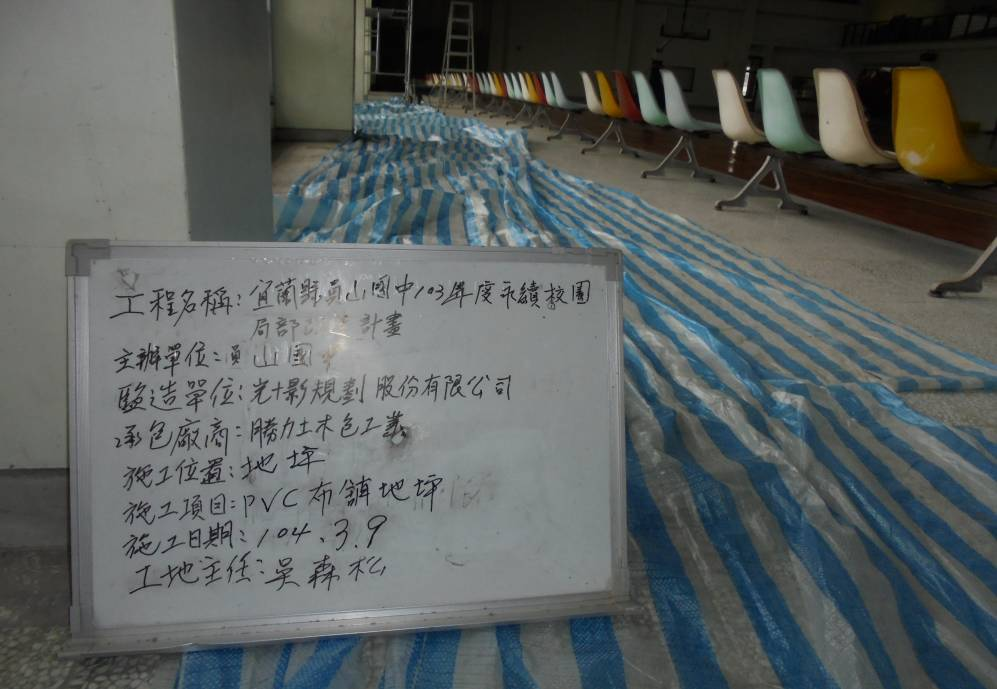 工程名稱:宜蘭縣員山國中103年度永續校園
局部改造計畫
主辦單位:員山國中
監造單位:光十影規劃股份有限公司
承包廠商:勝力土木包工業
施工位置:地坪
施工項目:PVC布舖地坪
施工日期:104.3.9
工地主任:吳森松